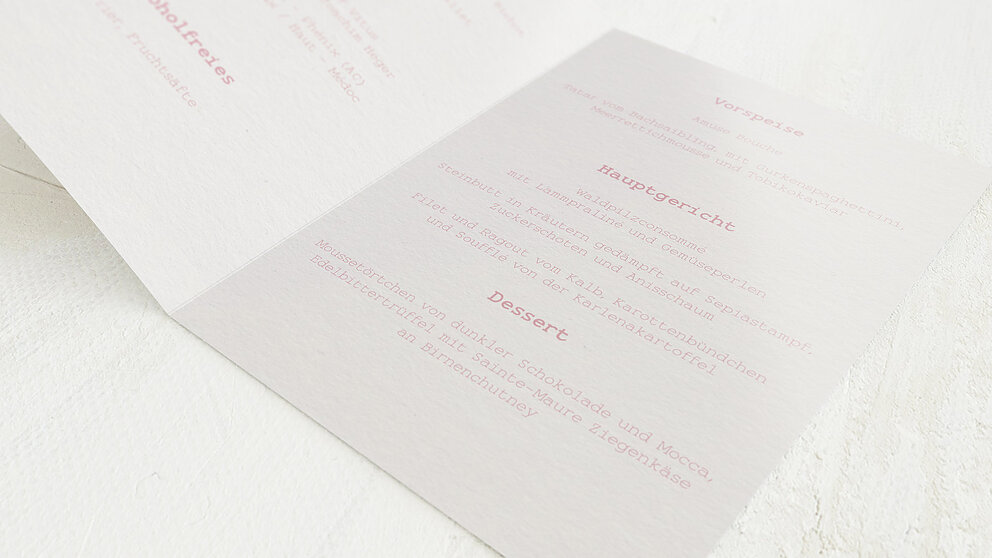 Vitus
Joachim Heger
- Phélix (AC)
/ Haut - Medoc
oholfreies
Fruchtsäfte
Vorspeise
Amuse Bouche
Tatar vom Bachsaibling, mit Gurkenspaghettini,
Meerrettichmousse und Tonikokaviar
Hauptgericht
Waldpilzconsommé
mit Lammpraline und Gemüseperlen
Steinbutt in Kräutern gedämpft auf Sepiastampf,
Zuckerschoten und Anisschaum
Filet und Ragout vom Kalb, Karottenbündchen
und Soufflé von der Karlenakartoffel
Dessert
Moussetörtchen von dunkler Schokolade und Mocca,
Edelbittertrüffel mit Sainte-Maure Ziegenkäse
an Birnenchutney